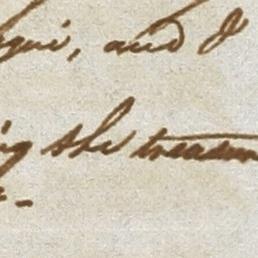 and I
ing the treasure